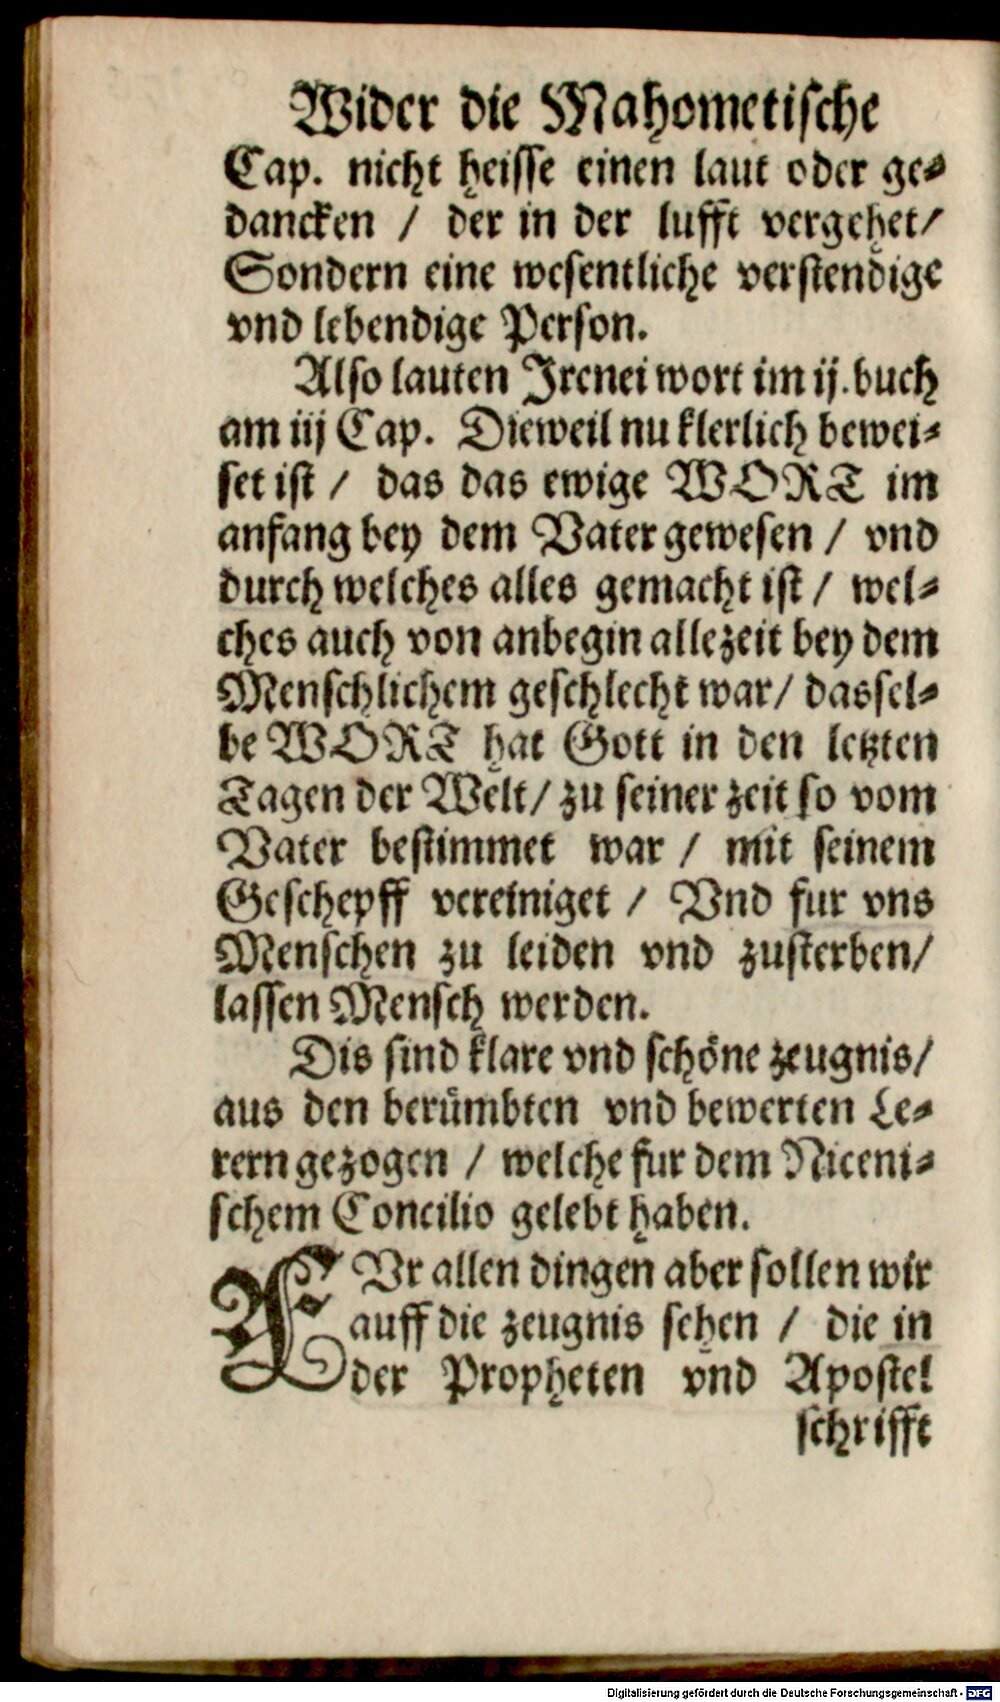 Wider die Mahometische
Cap. nicht heisse einen laut oder ge⸗
dancken / der in der lufft vergehet/
Sondern eine wesentliche verstendige
vnd lebendige Person.
Also lauten Irenei wort im ij. buch
am iij Cap. Dieweil nu klerlich bewei⸗
set ist / das das ewige WORT im
anfang bey dem Vater gewesen / vnd
durch welches alles gemacht ist / wel⸗
ches auch von anbegin allezeit bey dem
Menschlichem geschlecht war/ dassel⸗
be WORT hat Gott in den letzten
Tagen der Welt/ zu seiner zeit so vom
Vater bestimmet war / mit seinem
Geschepff vereiniget / Vnd fur vns
Menschen zu leiden vnd zusterben/
lassen Mensch werden.
Dis sind klare vnd schöne zeugnis/
aus den berümbten vnd bewerten Le⸗
rern gezogen / welche fur dem Niceni⸗
schem Concilio gelebt haben.
FVr allen dingen aber sollen wir
auff die zeugnis sehen / die in
der Propheten vnd Apostel
schrifft
Digitalisierung gefördert durch die Deutsche Forschungsgemeinschaft - DFG